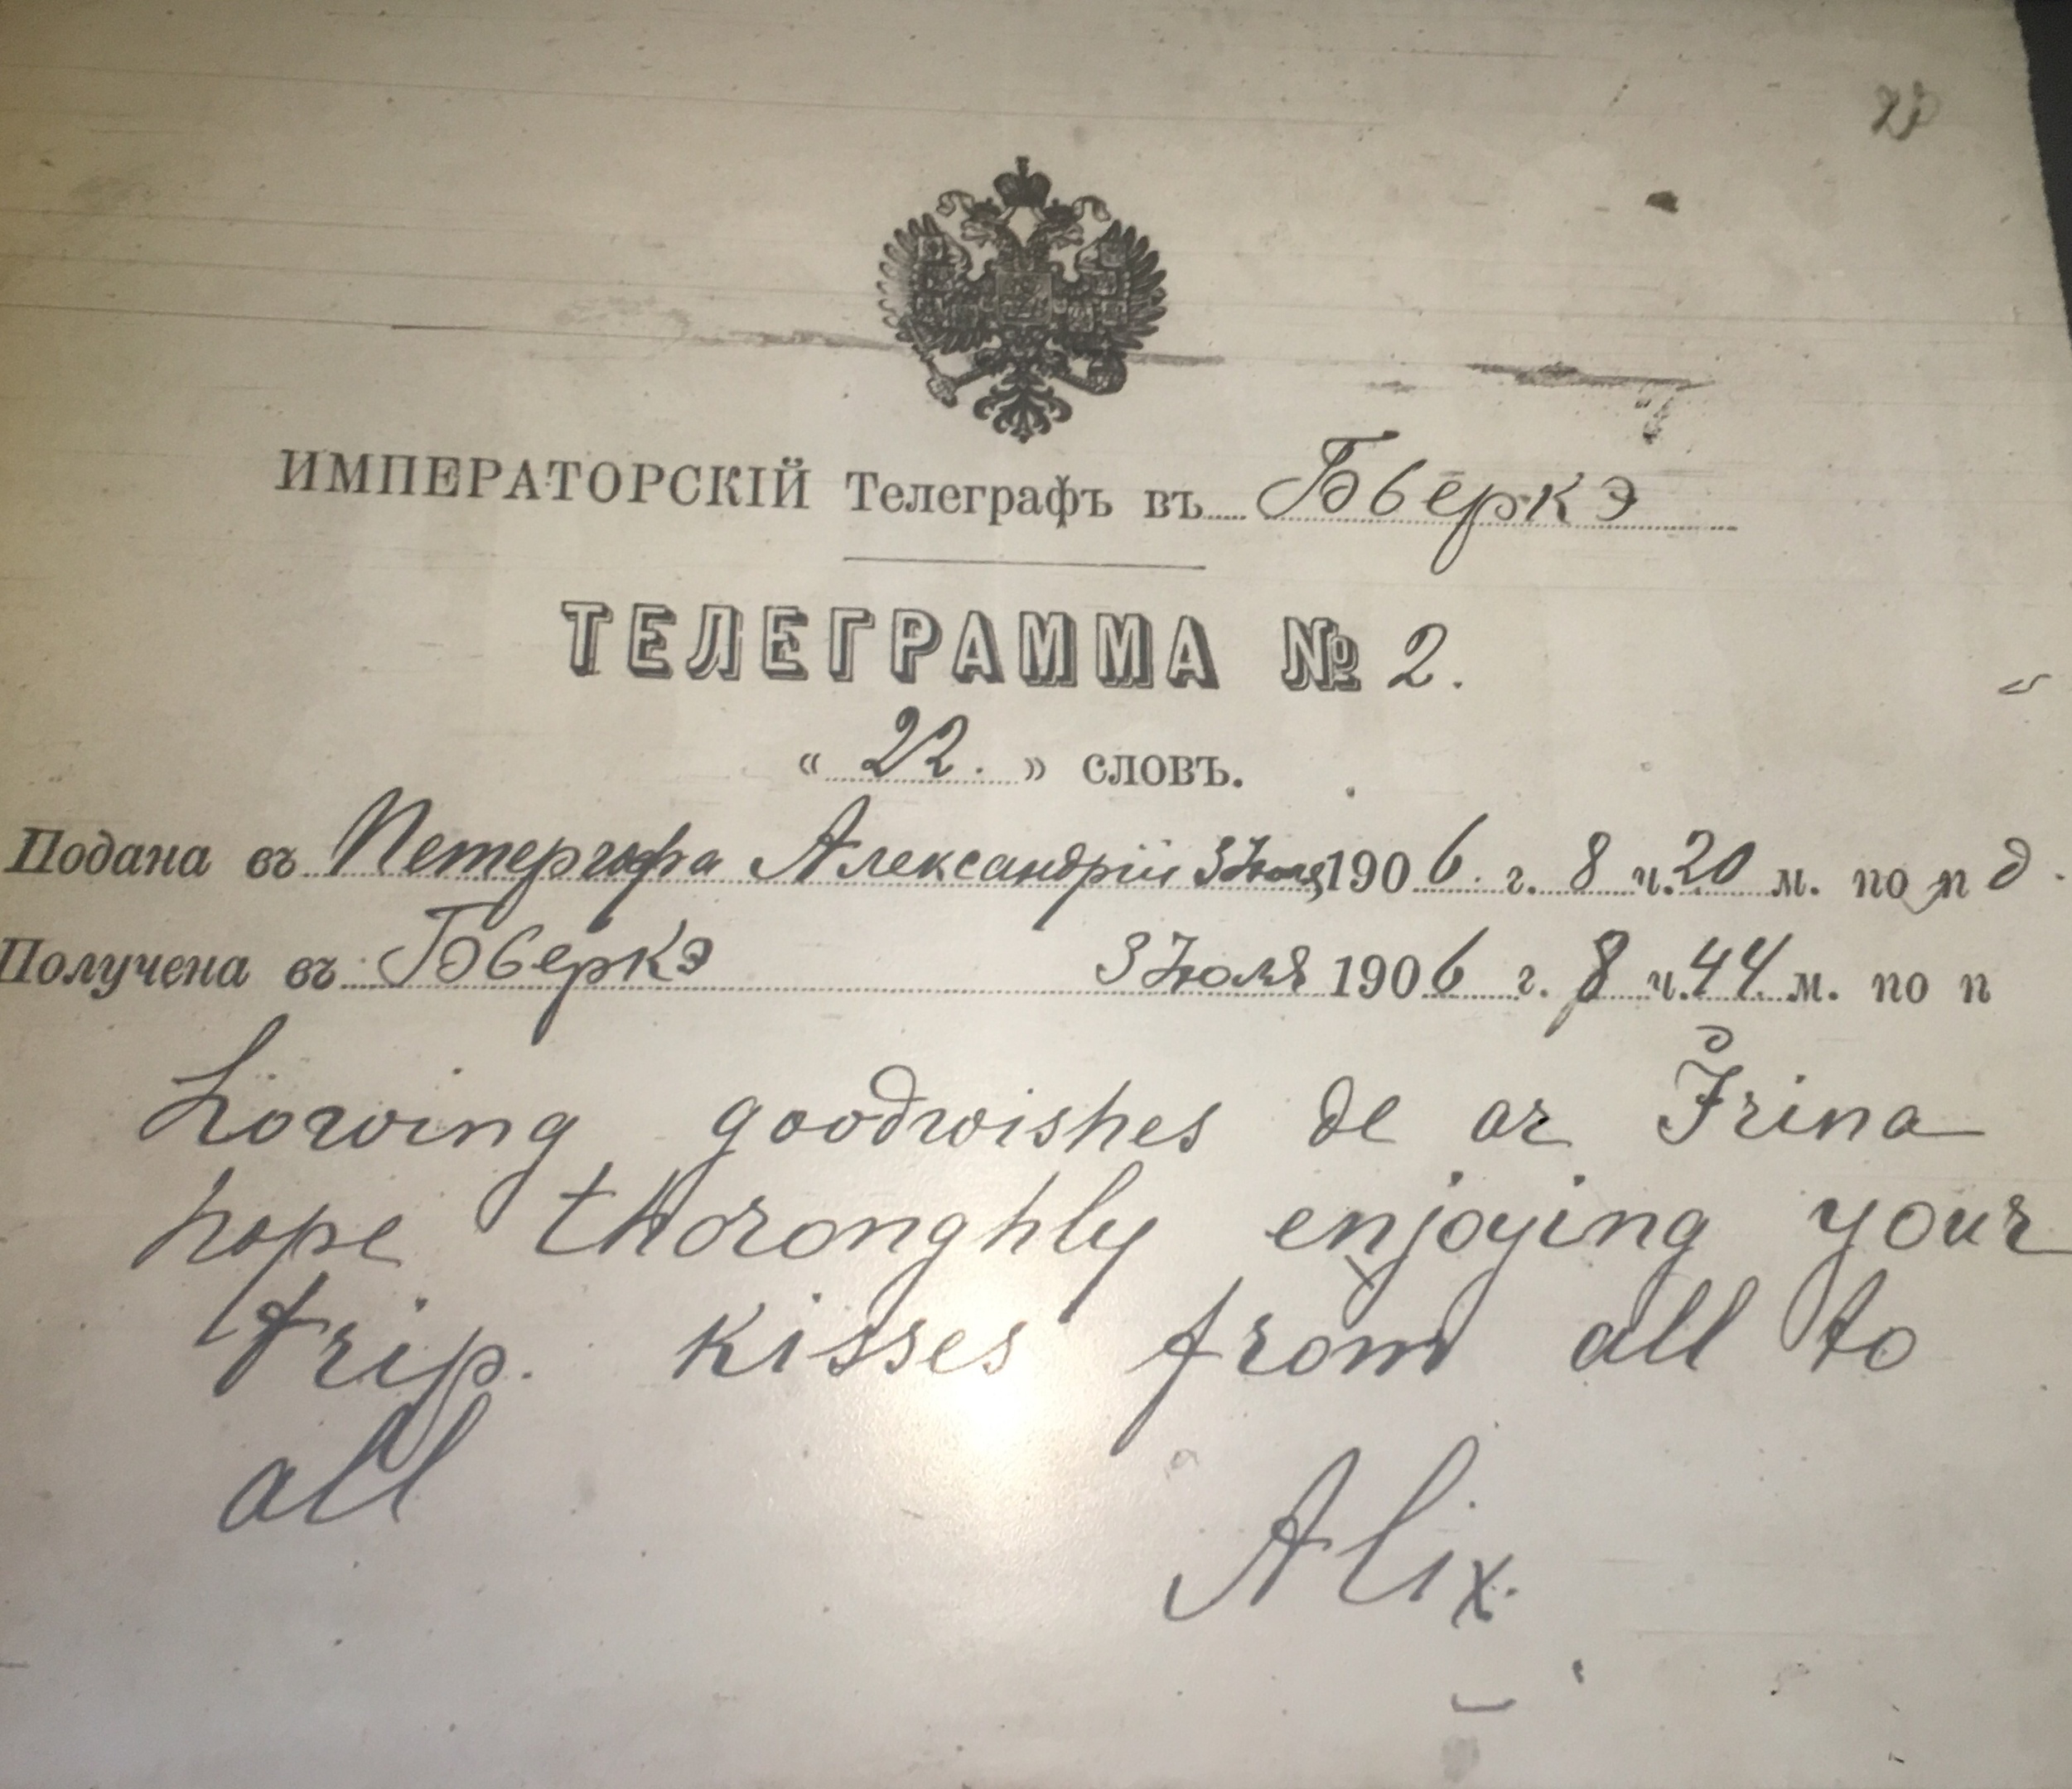 22
ИМПЕРАТОРСКІЙ Телеграфъ въ Бверкэ
ТЕЛЕГРАММА № 2.
« 22. » словъ.
Подана въ Петергофа Александріи 3 Июля 1906 г. 8 ч. 20 м. по п д.
Получена въ Бверкэ 3 Июля 1906 г. 8 ч. 44 м. по п
Lowing goodwishes de ar Irina
hope thoronghly enjoying your
trip. kisses from all to
all
Alix.